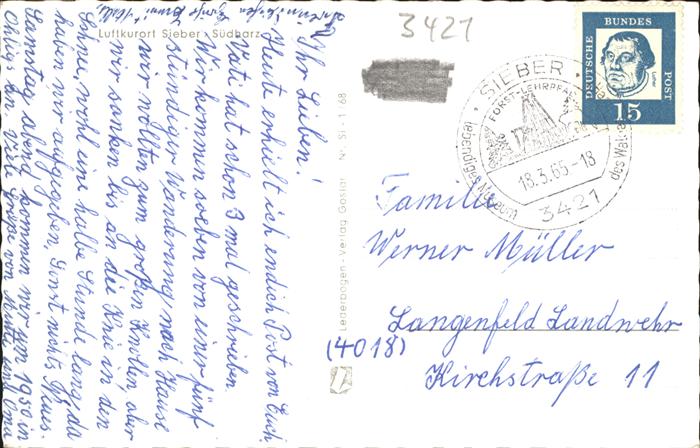 3421
Luftkurort Sieber · Südharz
Ihr Lieben!
Heute erhielt ich endlich Post von Euch
Vati hat schon 3 mal geschrieben.
Wir kommen soeben von einer fünf
stündiger Wanderung nach Hause
wir wollten zum großen Knollen, aber
wir sanken bis an die Knie in den
Schnee, wohl eine halbe Stunde lang, da
haben wir aufgegeben. Sonst nichts Neues.
Samstag abend kommen wir um 19⁵⁰ in
Ohlig an. Viele von Mutti und Oma
Lederbogen-Verlag Goslar Nr. Si. 1/68
DEUTSCHE BUNDES POST
Luther
15
SIEBER
FORST-LEHRPFAD
lebendiges Museum des Waldes
18.3.65-18
3421
Familie
Werner Müller
Langenfeld Landwehr
(4018)
Kirchstraße 11